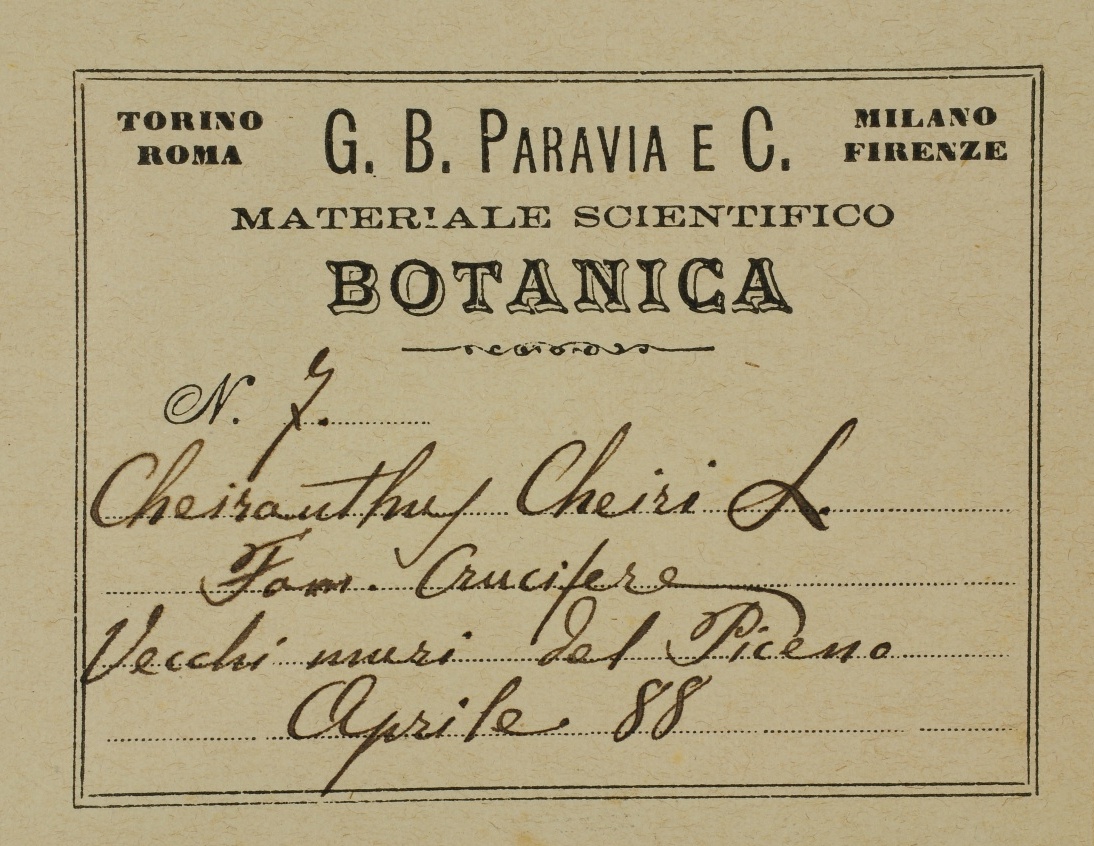 TORINO ROMA G. B. PARAVIA E C. MILANO FIRENZE
MATERIALE SCIENTIFICO
BOTANICA
N. 7.
Cheiranthus Cheiri L.
Fam. Crucifere
Vecchi muri del Piceno
Aprile 88